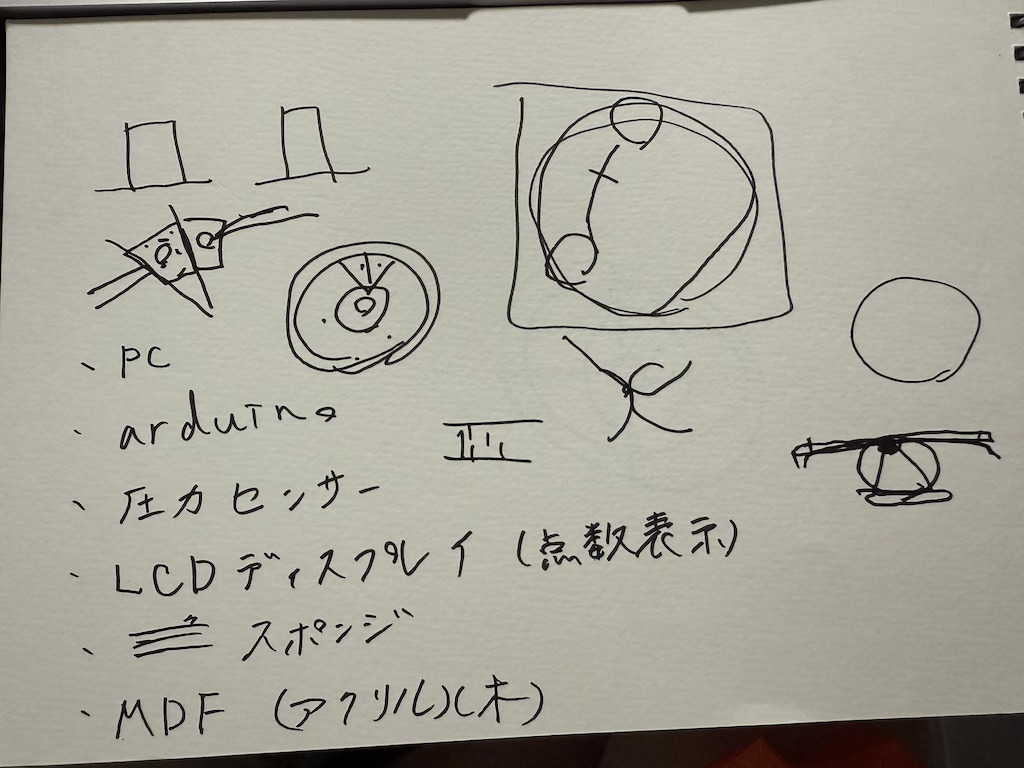 、PC
、arduino
、圧力センサー
、LCDディスプレイ (点数表示)
、スポンジ
、MDF (アクリル)(木)